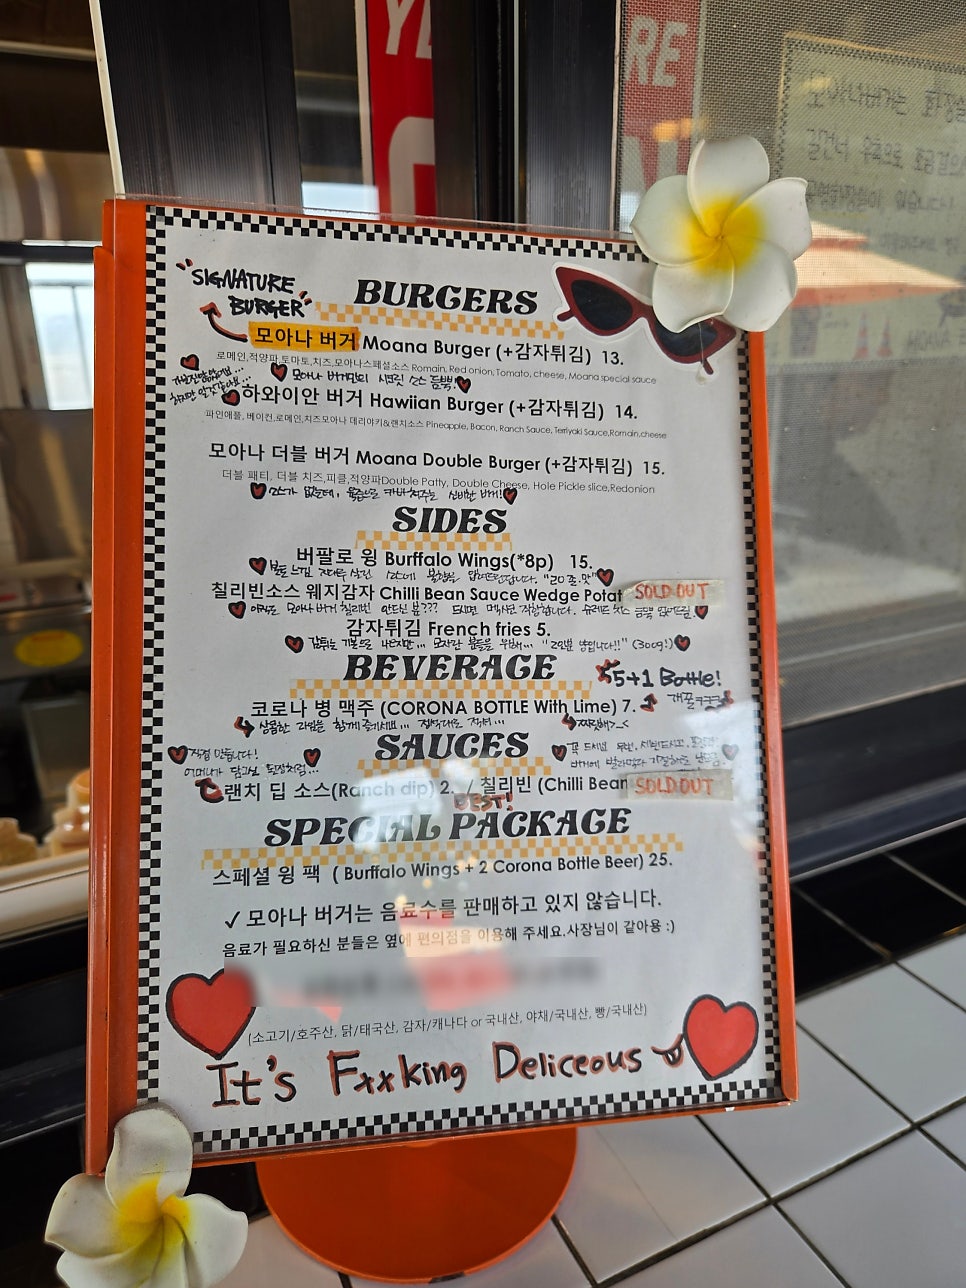 YL
RE
"SIGNATURE
BURGER"
BURGERS
모아나 버거 Moana Burger (+감자튀김) 13.
로메인,적양파,토마토,치즈,모아나스페셜소스 Romain, Red onion, Tomato, cheese, Moana special sauce
모아나 버거만의 시크릿 소스 듬뿍!
하와이안 버거 Hawiian Burger (+감자튀김) 14.
파인애플, 베이컨,로메인,치즈모아나 데리야키&랜치소스 Pineapple, Bacon, Ranch Sauce, Terriyaki Sauce,Romain,cheese
모아나 더블 버거 Moana Double Burger (+감자튀김) 15.
더블 패티, 더블 치즈,피클,적양파Double Patty, Double Cheese, Hole Pickle slice,Redonion
소스가 없는데, 육즙으로 커버쳐주는 신비한 버거!
SIDES
버팔로 윙 Burffalo Wings(*8p) 15.
칠리빈소스 웨지감자 Chilli Bean Sauce Wedge Potat SOLD OUT
감자튀김 French fries 5.
감튀는 기본으로 나오지만... 모자란 분들을 위해... (300g!)
BEVERAGE
5+1 Bottle!
코로나 병 맥주 (CORONA BOTTLE With Lime) 7.
개꿀ㅋㅋㅋ
상콤한 라임을 함께 즐기세요...
SAUCES
직접 만듭니다!
어머니가 담그신 된장처럼...
랜치 딥 소스(Ranch dip) 2. / 칠리빈 (Chilli Bean SOLD OUT
BEST!
SPECIAL PACKAGE
스페셜 윙 팩 ( Burffalo Wings + 2 Corona Bottle Beer) 25.
✓ 모아나 버거는 음료수를 판매하고 있지 않습니다.
음료가 필요하신 분들은 옆에 편의점을 이용해 주세요.사장님이 같아용 :)
(소고기/호주산, 닭/태국산, 감자/캐나다 or 국내산, 야채/국내산, 빵/국내산)
It's Fxxking Deliceous